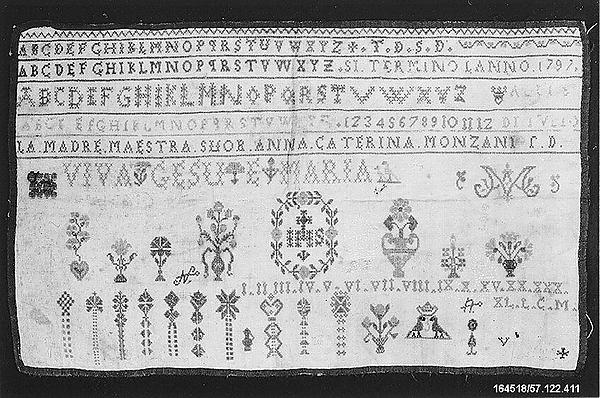 ABCDEFGHIKLMNOPQRSTUVWXYZ T.D.S.D.
ABCDEFGHIKLMNOPQRSTUVWXYZ.SI.TERMINO.LANNO.1797.
ABCDEFGHIKLMNOPQRSTVWXYZ
ABCDEFGHIKLMNOPQRSTUVWXYZ.123456789101112
LA.MADRE.MAESTRA.SUOR.ANNA.CATERINA.MONZANI
VIVA GESU E MARIA
IHS
I.II.III.IV.V.VI.VII.VIII.IX.X.XV.XX.XXX
XL.L.C.M.
164518/57.122.411